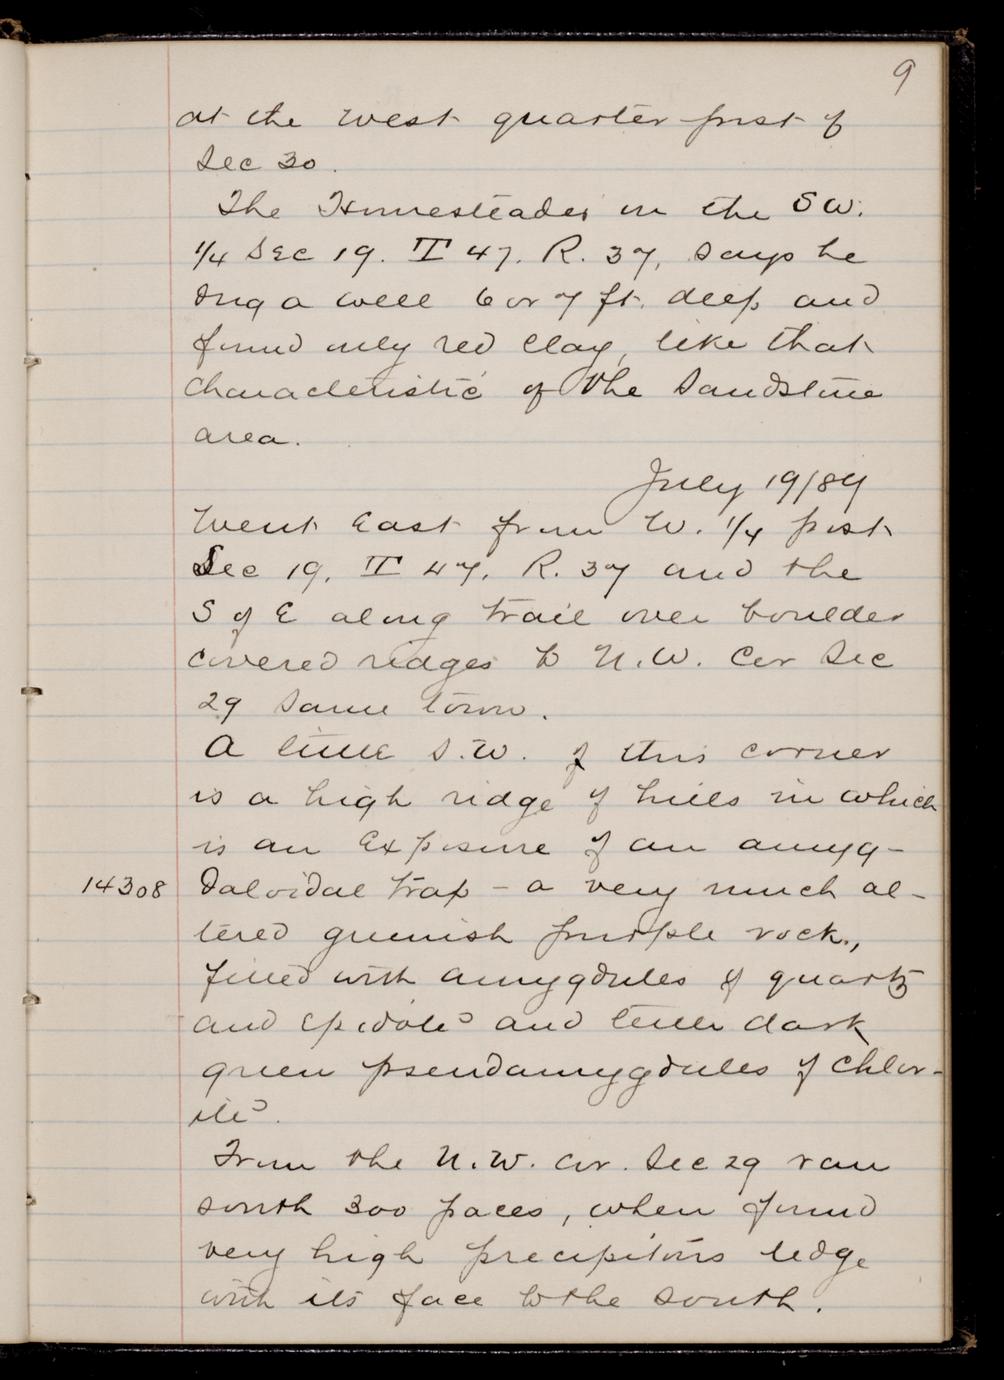 9
at the West quarter post of
Sec 30.
The Homesteader in the SW.
1/4 Sec 19. T 47. R. 37, says he
dug a well 6 or 7 ft. deep and
found only red clay, like that
characteristic of the Sandstone
area.
July 19/89
Went East from W. 1/4 post
Sec 19, T 47, R. 37 and the
S of E along trail over boulder
covered ridges to N.W. Cor Sec
29 same town.
A little S.W. of this corner
is a high ridge of hills in which
is an Exposure of an amyg-
14308 daloidal trap - a very much al-
tered greenish purple rock.,
filled with amygdules of quartz
and epidote and little dark
green pseudamygdules of chlor-
ite.
From the N.W. Cor. Sec 29 ran
south 300 paces, when found
very high precipitous ledge
with its face to the south.